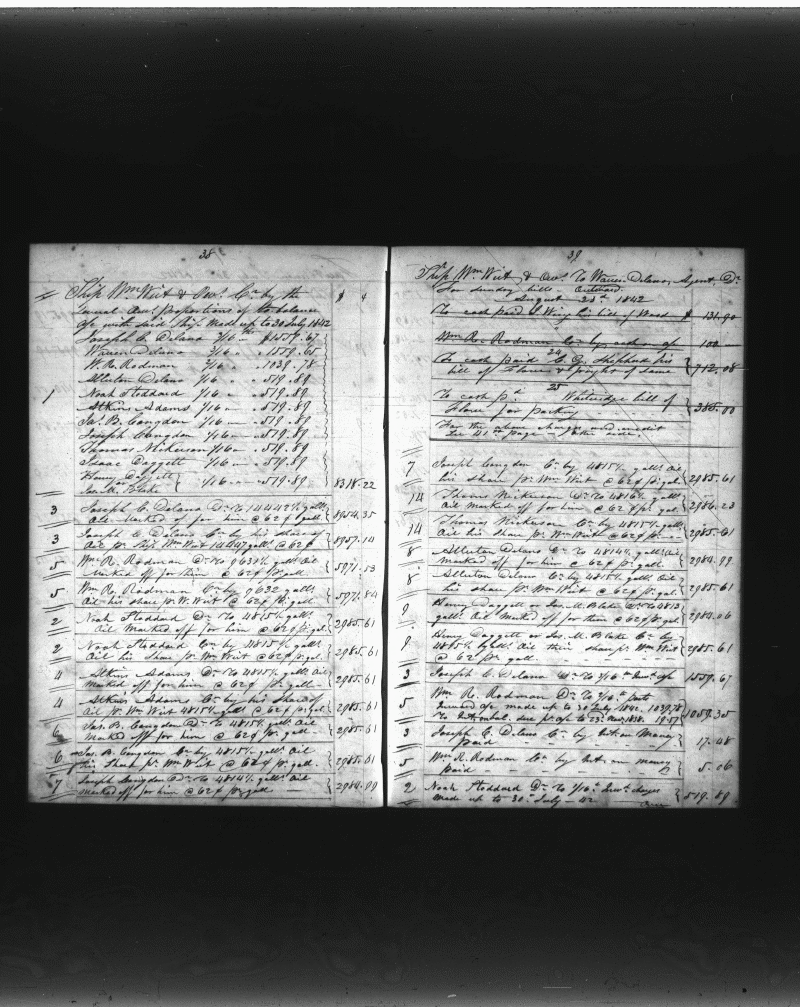 38
Ship Wm Wirt & Ows. Cr. by the $ ¢
Several Ows. proportions of the balance
a/c with said Ship. Made up to 30 July 1842
Joseph C. Delano 3/16 " $1559.67
Warren Delano 3/16 " 1559.65
W. R. Rodman 2/16 " 1039.78
Alluton Delano 1/16 " 519.89
Noah Stoddard 1/16 " 519.89
1 Atkins Adams 1/16 " 519.89
Jas. B. Congdon 1/16 " 519.89
Joseph Congdon 1/16 " 519.89
Thomas Nickerson 1/16 " 519.89
Isaac Daggett 1/16 " 519.89
Henry Daggett
Jas. M. Blake 1/16 " 519.89 8318.22
3 Joseph C. Delano Dr. to 14442½ galls.
Oil Marked off for him @ 62¢ pr. gall. 8954.35
3 Joseph C. Delano Cr. by his share of
Oil pr. Ship Wm Wirt 14447 galls @ 62¢ 8957.14
5 Wm. R. Rodman Dr. to 9631½ galls Oil
Marked off for him @ 62¢ pr. gall. 5971.53
5 Wm R. Rodman Cr. by 9632 galls.
Oil his share pr. W. Wirt @ 62¢ pr. gall. 5971.84
2 Noah Stoddard Dr. to 4815½ galls.
Oil Marked off for him @ 62¢ pr. gal. 2985.61
2 Noah Stoddard Cr. by 4815½ galls.
Oil his Share pr. Wm Wirt @ 62¢ pr. gal. 2985.61
4 Atkins Adams Dr. to 4815½ galls. Oil
marked off for him @ 62¢ pr. gall. 2985.61
4 Atkins Adams Cr. by his Share of
Oil pr. Wm Wirt 4815½ galls @ 62¢ pr. gal. 2985.61
6 Jas. B. Congdon Dr. to 4815½ galls. Oil
Marked off for him @ 62¢ pr. gall. 2985.61
6 Jas. B. Congdon Cr. by 4815½ galls. Oil
his Share pr. Wm Wirt @ 62¢ pr. gall. 2985.61
7 Joseph Congdon Dr. to 4814½ galls. Oil
marked off for him @ 62¢ pr. gall 2984.99
39
Ship Wm Wirt & Ows. To Warren Delano, Agent, Dr.
For sundry bills Outward.
August 23d 1842
To cash paid Wing Cs. bill of Wood $ 131.90
Wm R. Rodman Cr. by cash 100 —
24
To cash paid Shepherd his
bill of Flour & freight of same 712.08
25
To cash pd. Whitridge bill of
Flour for 385.00
For the above charges and credit
See 41st page
7 Joseph Congdon Cr. by 4815½ galls. Oil
his share pr. Wm Wirt @ 62¢ pr. gall. 2985.61
14 Thomas Nickerson Dr. to 4816½ galls
Oil marked off for him @ 62¢ pr. gal. 2986.23
14 Thomas Nickerson Cr. by 4815½ gall.
Oil his share pr. Wm Wirt @ 62¢ pr. 2985.61
8 Alluton Delano Dr. to 4814½ galls. Oil
marked off for him @ 62¢ pr. gall. 2984.99
8 Alluton Delano Cr. by 4815½ galls. Oil
his share pr. Wm Wirt @ 62¢ pr. gall. 2985.61
9 Henry Daggett or Jas. M. Blake Dr. to 4813
galls. Oil Marked off for them @ 62¢ pr. gal 2984.06
9 Henry Daggett or Jas. M. Blake Cr. by
4815½ galls. Oil their share pr. Wm Wirt
@ 62¢ pr. gall. 2985.61
3 Joseph C. Delano Dr. to 3/16 Inwd. a/c 1559.67
5 Wm R. Rodman Dr. to 2/16th parts
Inward a/c made up to 30 July 1842. 1039.78
To due pr. a/c to 23d Novr. 1838. 19.57 1059.35
3 Joseph C. Delano Cr. by Int. on Money
paid 17.48
5 Wm R. Rodman Cr. by Int. on money
paid 5.06
2 Noah Stoddard Dr. to 1/16th Inwd. charges
made up to 30th July - 42 519.89
Over